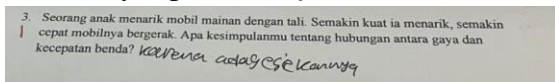 3. Seorang anak menarik mobil mainan dengan tali. Semakin kuat ia menarik, semakin
cepat mobilnya bergerak. Apa kesimpulanmu tentang hubungan antara gaya dan
kecepatan benda? karena adagesekannya